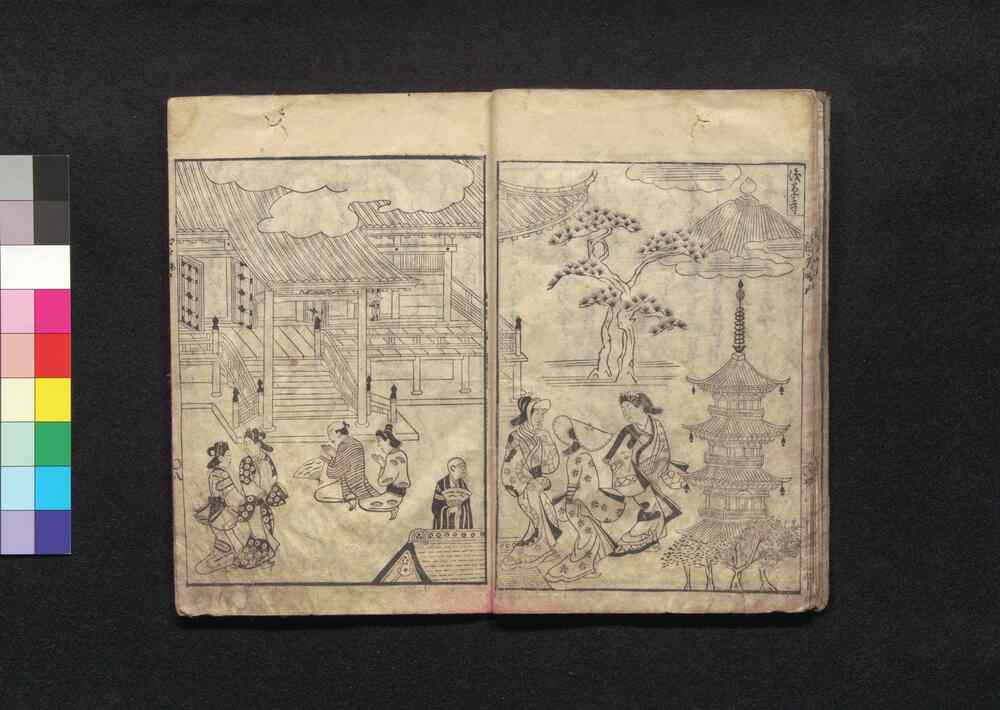 浅草寺